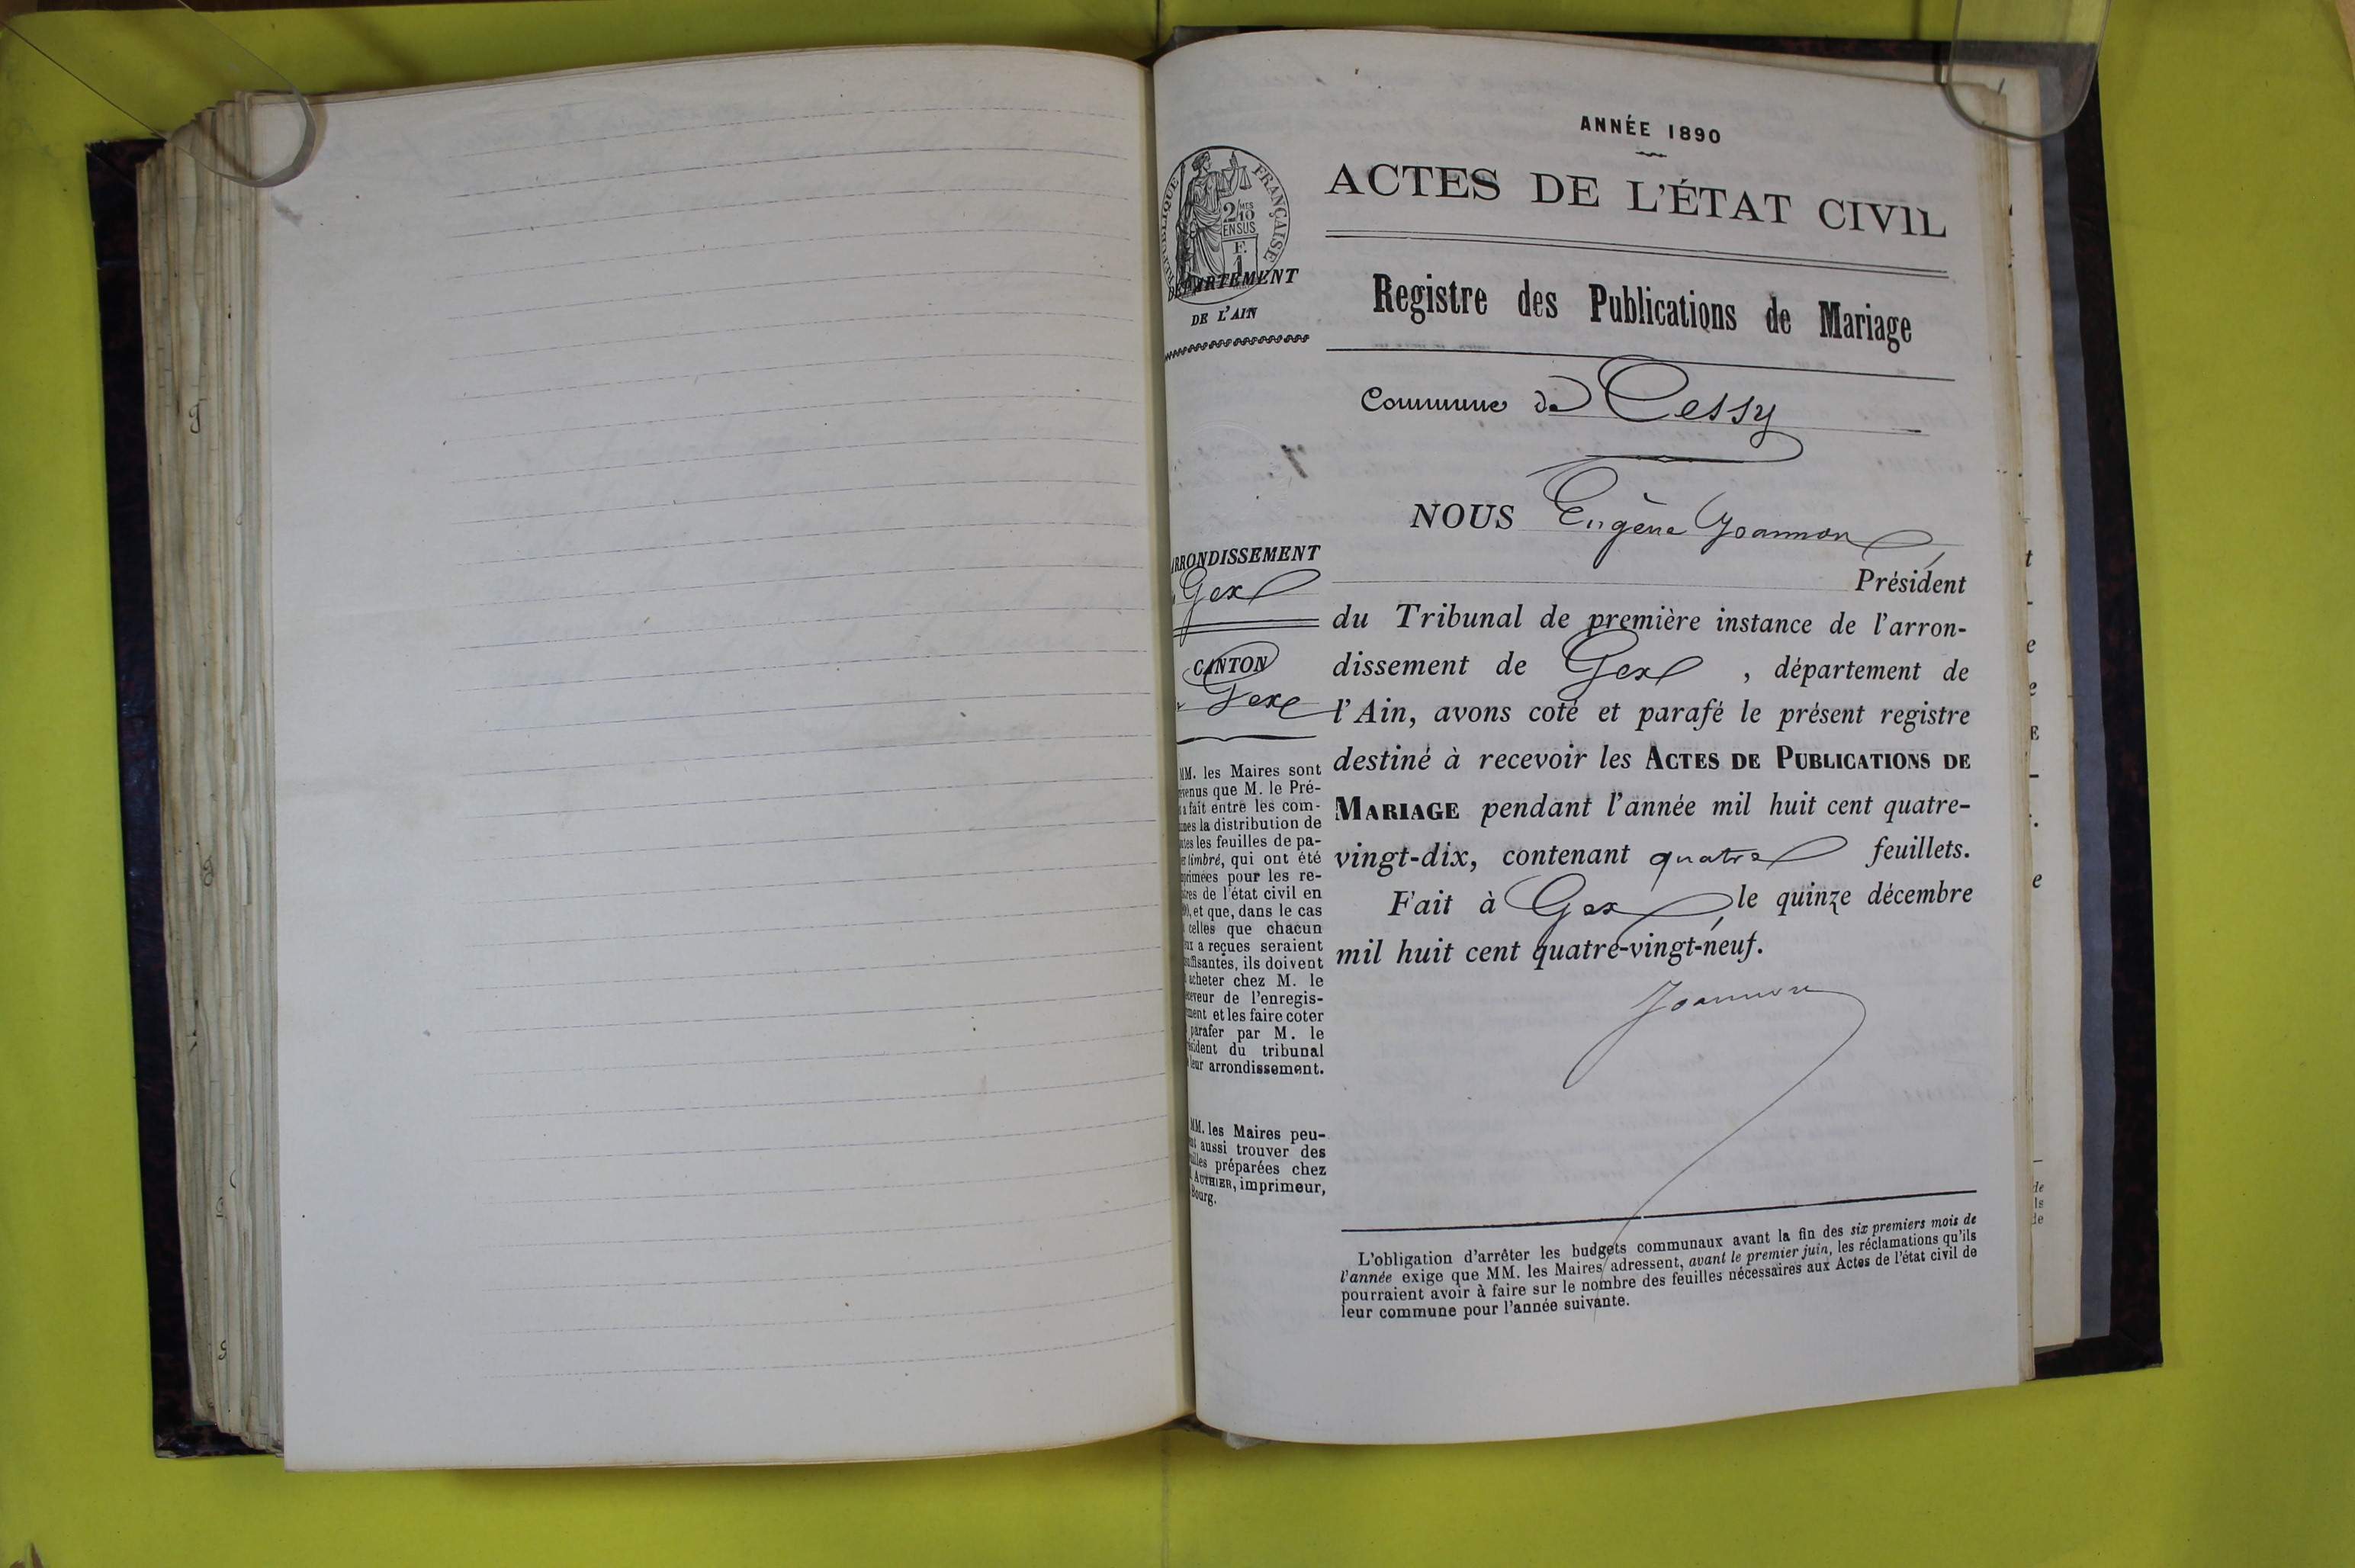 ANNÉE 1890
ACTES DE L'ÉTAT CIVIL
RÉPUBLIQUE FRANÇAISE
2/10 MES
EN SUS
F.
1
DÉPARTEMENT
DE L'AIN
Registre des Publications de Mariage
Commune de Cessy
NOUS Eugène Joannon,
Président
du Tribunal de première instance de l'arron-
dissement de Gex, département de
l'Ain, avons coté et parafé le présent registre
destiné à recevoir les ACTES DE PUBLICATIONS DE
MARIAGE pendant l'année mil huit cent quatre-
vingt-dix, contenant quatre feuillets.
Fait à Gex, le quinze décembre
mil huit cent quatre-vingt-neuf.
Joannon
RRONDISSEMENT
Gex
CANTON
Gex
MM. les Maires sont
venus que M. le Pré-
a fait entre les com-
unes la distribution de
utes les feuilles de pa-
er timbré, qui ont été
primées pour les re-
tres de l'état civil en
, et que, dans le cas
celles que chacun
ux a reçues seraient
suffisantes, ils doivent
acheter chez M. le
ceveur de l'enregis-
ment et les faire coter
parafer par M. le
sident du tribunal
leur arrondissement.
MM. les Maires peu-
nt aussi trouver des
uilles préparées chez
AUTHIER, imprimeur,
Bourg.
L'obligation d'arrêter les budgets communaux avant la fin des six premiers mois de
l'année exige que MM. les Maires adressent, avant le premier juin, les réclamations qu'ils
pourraient avoir à faire sur le nombre des feuilles nécessaires aux Actes de l'état civil de
leur commune pour l'année suivante.